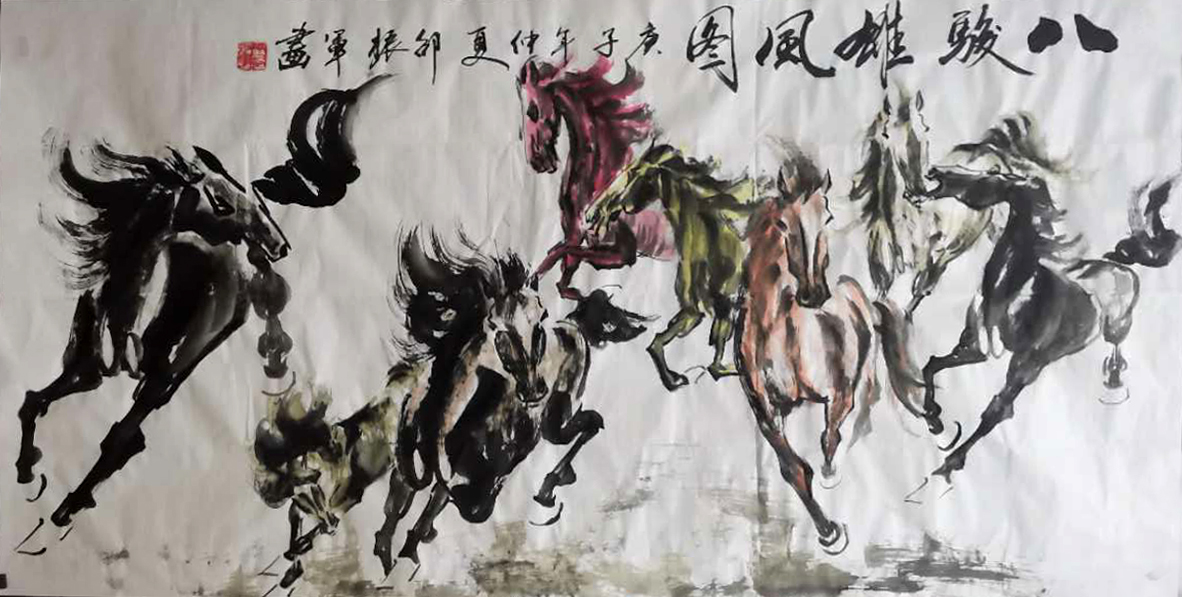 八骏雄风图庚子年仲夏邵振军画